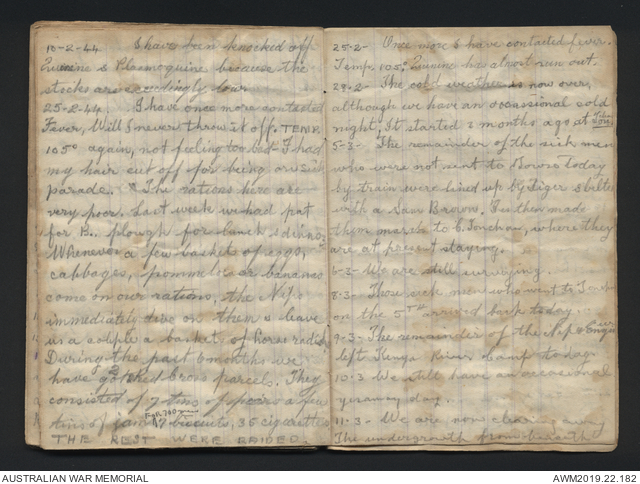 10-2-44 I have been knocked off
Quinine & Plasmoquine because the
stocks are exceedingly low.
25-2-44. I have once more contacted
Fever, Will I never throw it off. TEMP.
105° again, not feeling too bad. I had
my hair cut off for being on sick
parade. The rations here are
very poor. Last week we had pat
for B., plough for lunch & dinner
Whenever a few baskets of eggs,
cabbages, pommeloes or bananas
come on our rations, the Nips
immediately dive on them & leave
us a couple a baskets of horse radish
During the past 6 months we
have got Red Cross parcels. They
consisted of 7 tins of pears a few
tins of jam 17 biscuits, 35 cigarettes
For 700 men
THE REST WERE RAIDED.
25-2- Once more I have contacted fever.
Temp. 105° Quinine has almost run out.
29-2- The cold weather is now over,
although we have an occassional cold
night. It started 2 months ago at
5-3- The remainder of the sick men
who were not sent to today
by train were lined up by Tiger & belted
with a Sam Brown. He then made
them march to , where they
are at present staying.
6-3- We are still surveying.
8-3- Those sick men who went to
on the 5TH arrived back today.
9-3- The remainder of the Nip
left River Camp to-day.
10-3 We still have an occasional
day.
11-3- We are now clearing away
The undergrowth from beneath
AUSTRALIAN WAR MEMORIAL
AWM2019.22.182